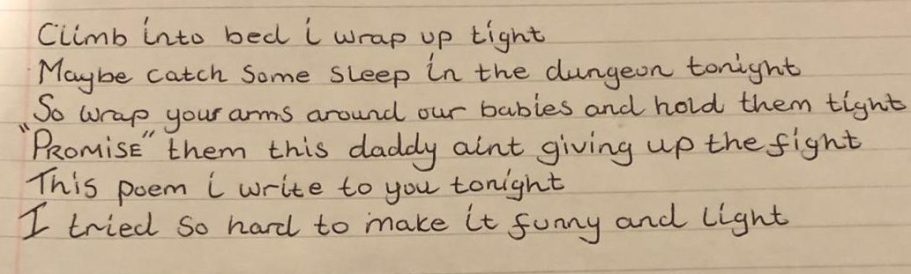 Climb into bed i wrap up tight
Maybe catch some sleep in the dungeon tonight
So wrap your arms around our babies and hold them tight
"PROMISE" them this daddy aint giving up the fight
This poem i write to you tonight
I tried so hard to make it funny and light